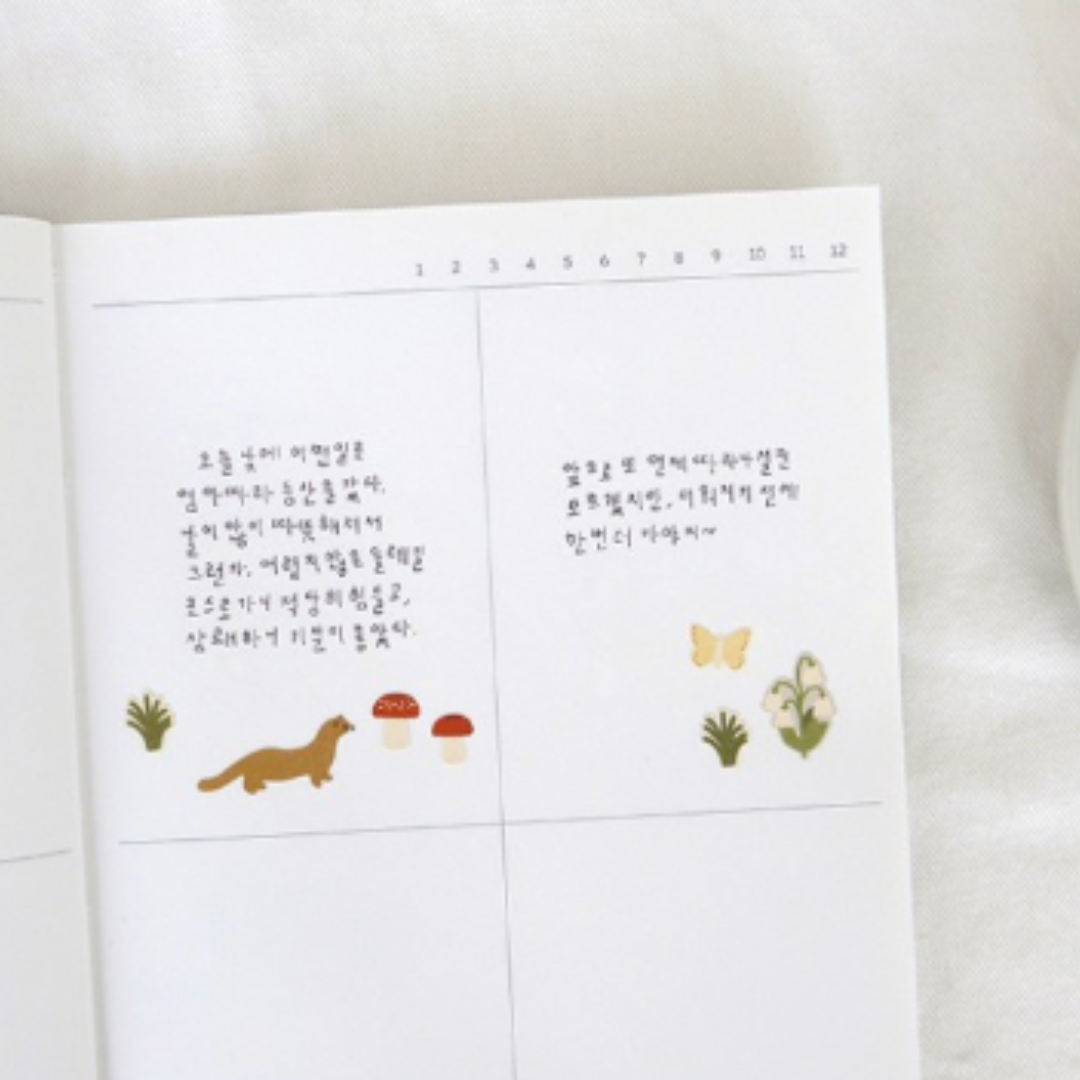 1 2 3 4 5 6 7 8 9 10 11 12
오늘 낮에 어쩐일로
엄마따라 등산을 갔다.
날이 많이 따뜻해져서
그런가, 어렵지 않은 둘레길
코스로 가서 적당히 힘들고,
상쾌해서 기분이 좋았다.
앞으로 또 언제 따라나설진
모르겠지만, 더워지기 전에
한번 더 가야지~